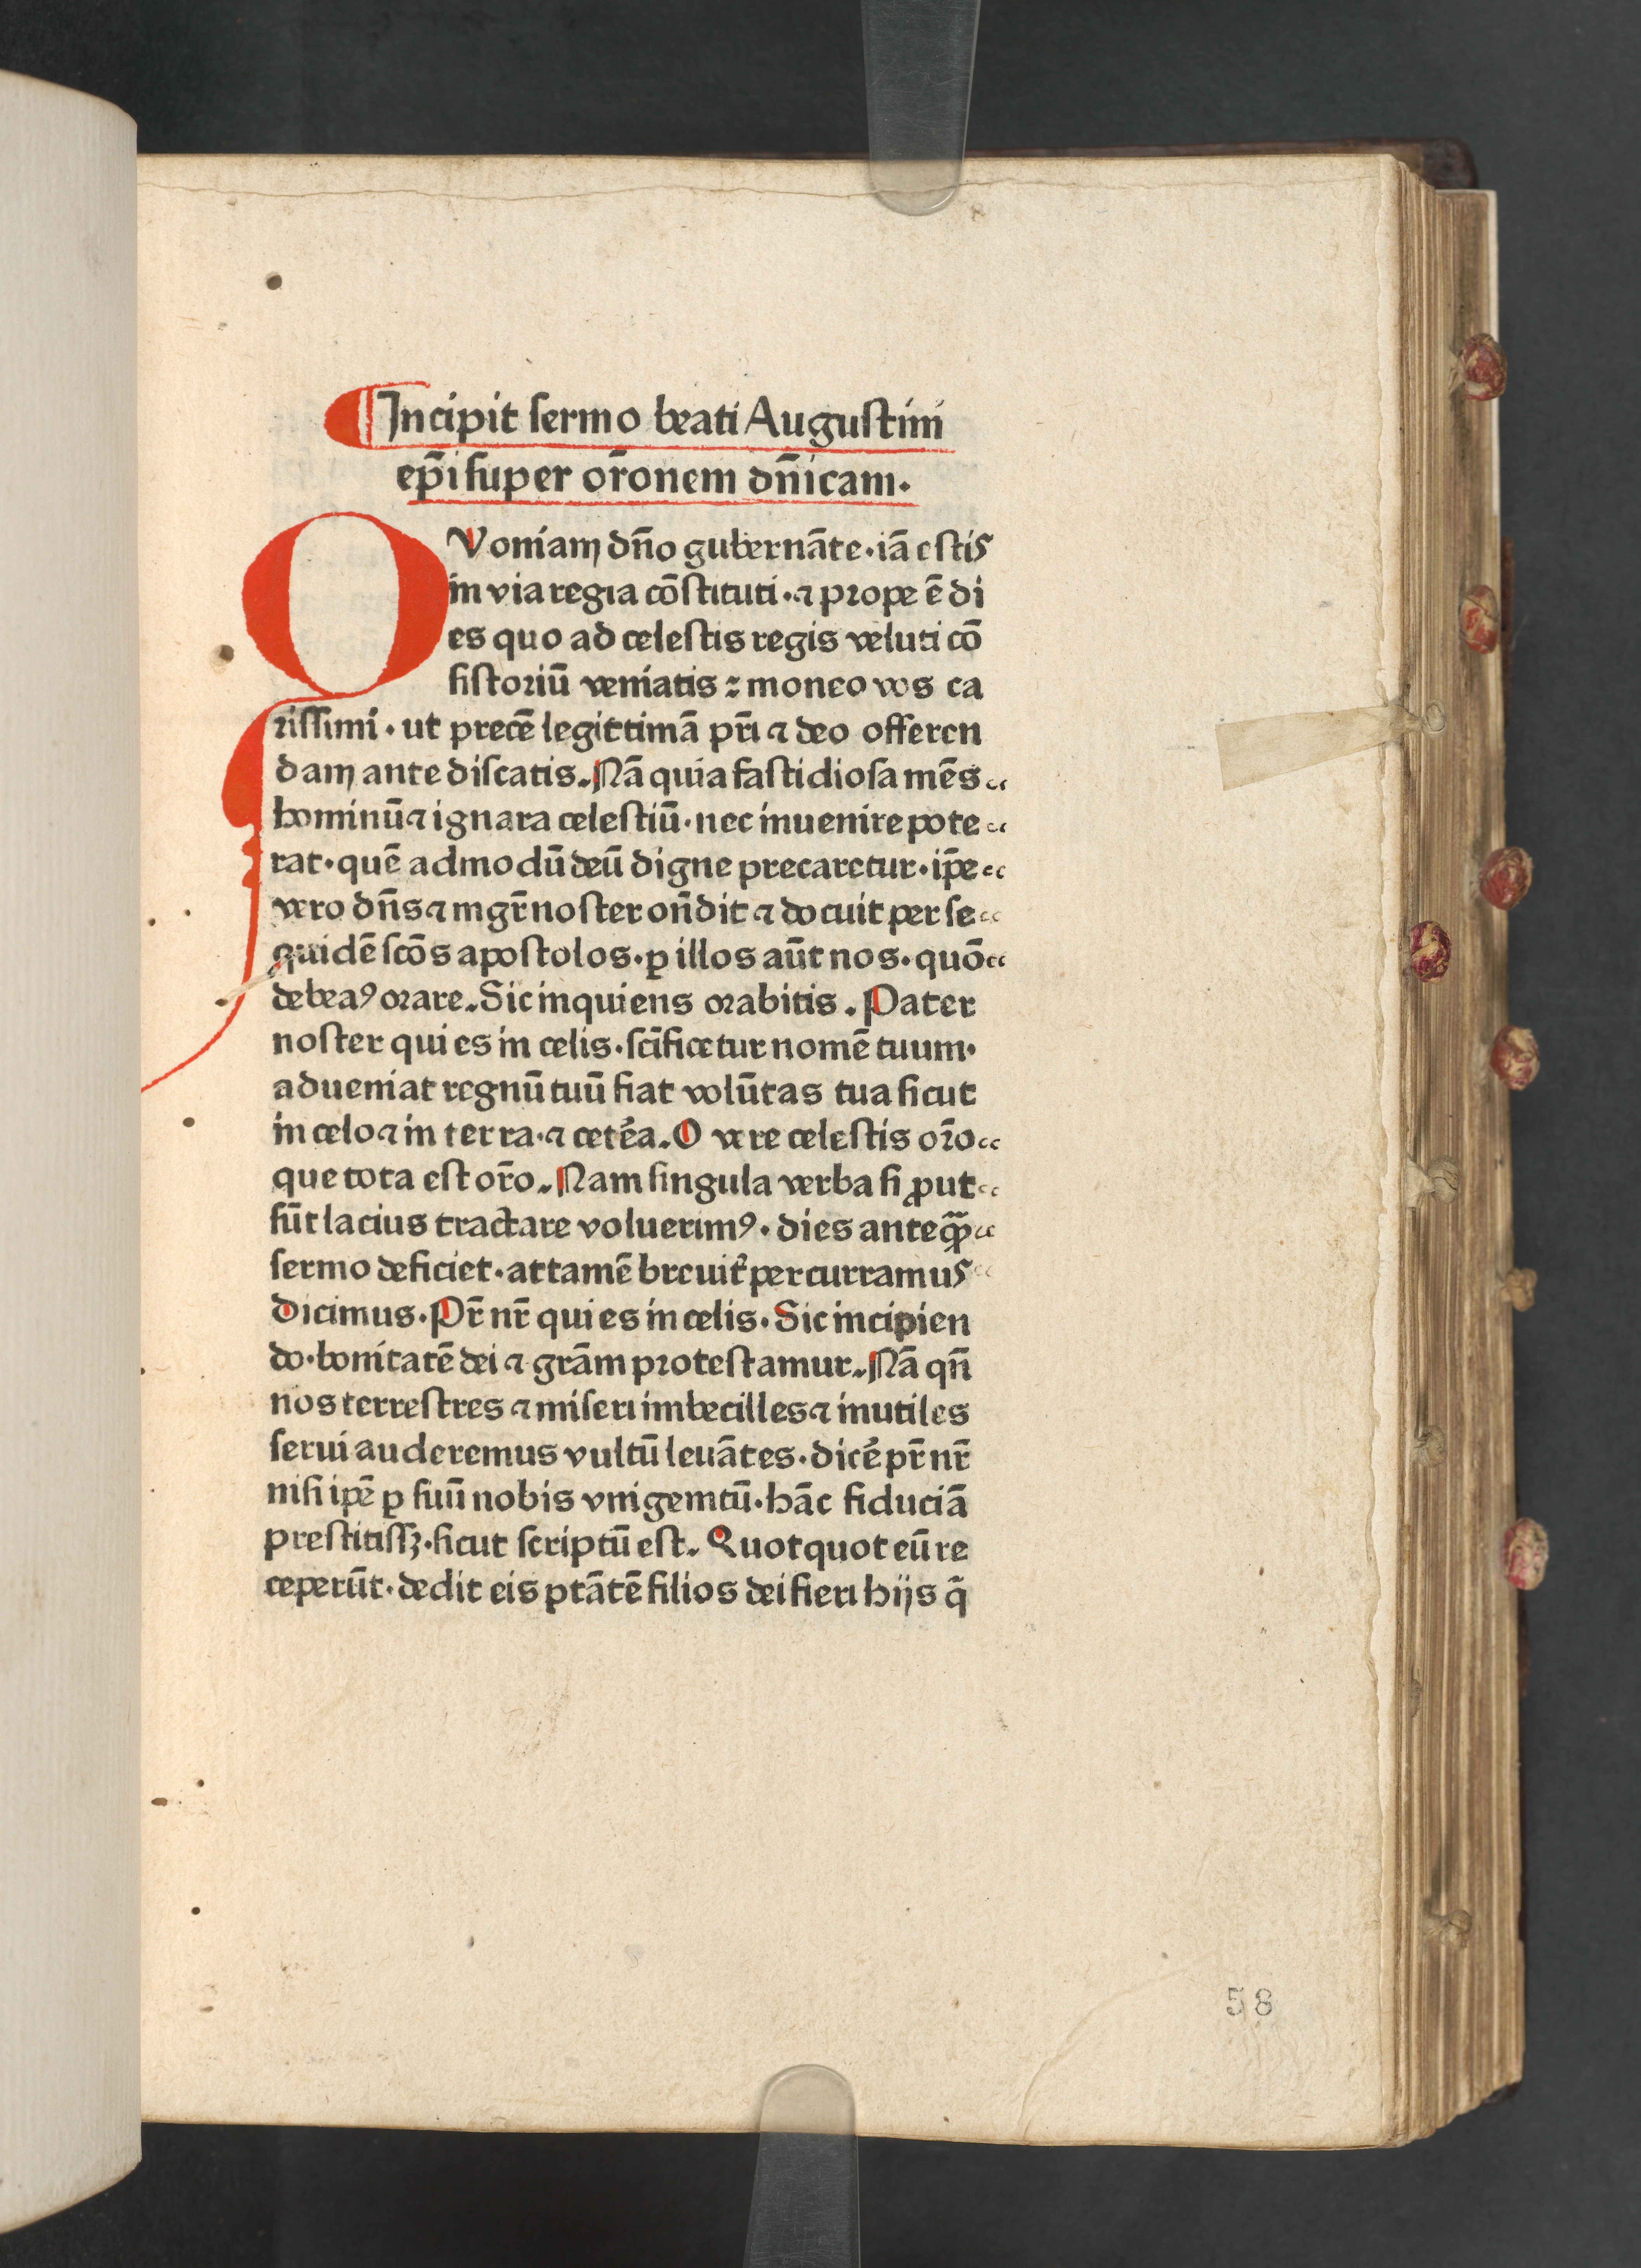 Incipit sermo beati Augustini
ep̄i super or̄onem dn̄icam.
QVoniam dn̄o gubernāte·iā estis
in via regia cōstituti·⁊ prope ē di
es quo ad celestis regis veluti cō
sistoriū veniatis : moneo vos ca
rissimi·ut precē legittimā pr̄i ⁊ deo offeren
dam ante discatis. Nā quia fastidiosa mēs
hominū ⁊ ignara celestiū·nec inuenire pote
rat·quē admodū deū digne precaretur·ip̄e
vero dn̄s ⁊ mgr̄ noster on̄dit ⁊ docuit per se
quidē sc̄os apostolos·ꝑ illos aūt nos·quō
debeaꝰ orare. Sic inquiens orabitis. Pater
noster qui es in celis·sc̄ificetur nomē tuum·
adueniat regnū tuū fiat volūtas tua sicut
in celo ⁊ in terra·⁊ cetēa. O vere celestis or̄o
que tota est or̄o. Nam singula verba si ꝓut
sūt lacius tractare voluerimꝰ·dies anteqꝫ̄
sermo deficiet·attamē breuit᷑ percurramus
Dicimus·Pr̄ nr̄ qui es in celis·Sic incipien
do·bonitatē dei ⁊ grām protestamur. Nā qn̄
nos terrestres ⁊ miseri imbecilles ⁊ inutiles
serui auderemus vultū leuātes·dicē pr̄ nr̄
nisi ip̄e ꝑ suū nobis vnigenitū·hāc fiduciā
prestitissꝫ·sicut scriptū est. Quotquot eū re
ceperūt·dedit eis ptātē filios dei fieri hijs q̄
58